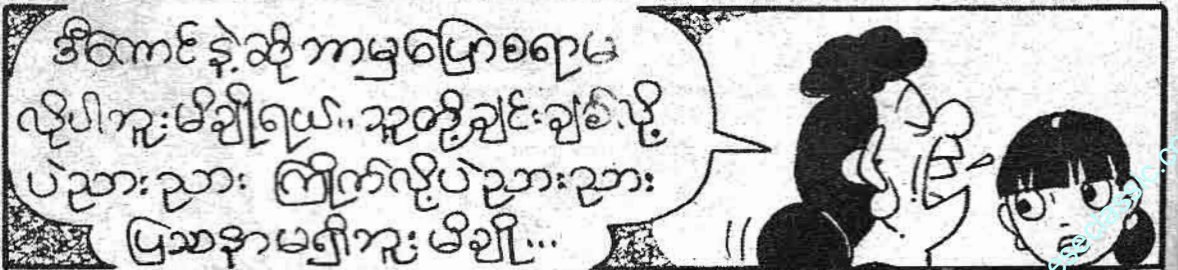 ဒီကောင်နဲ့ဆိုဘာမှပြောစရာမ
လိုပါဘူးမိချိုရယ်..သူတို့ချင်းချစ်လို့
ပဲညားညား ကြိုက်လို့ပဲညားညား
ပြဿနာမရှိဘူးမိချို...